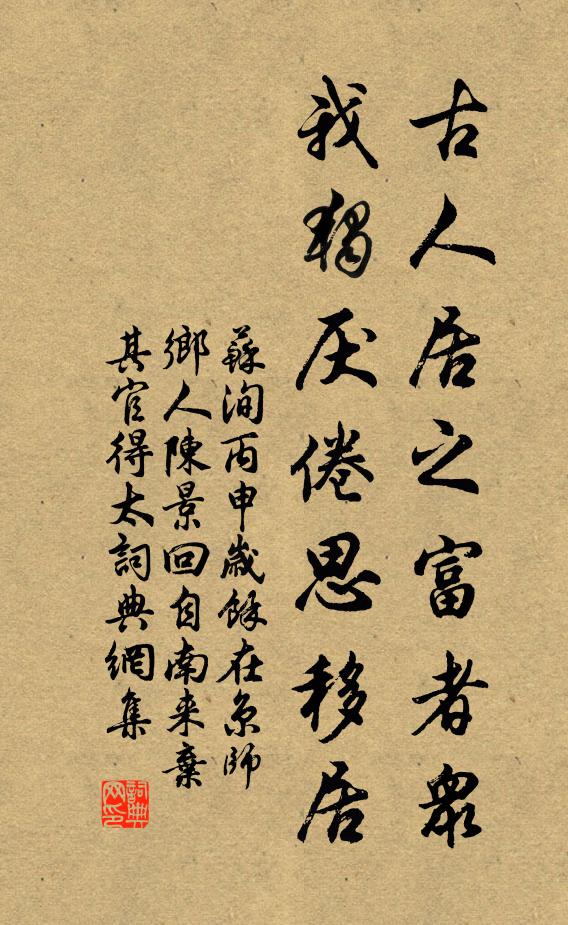 古人居之富者眾
我獨厌倦思移居
蘇洵丙申歲餘在京師
鄉人陳景回自南来棄
其官得太詞典網集
詞典
网印